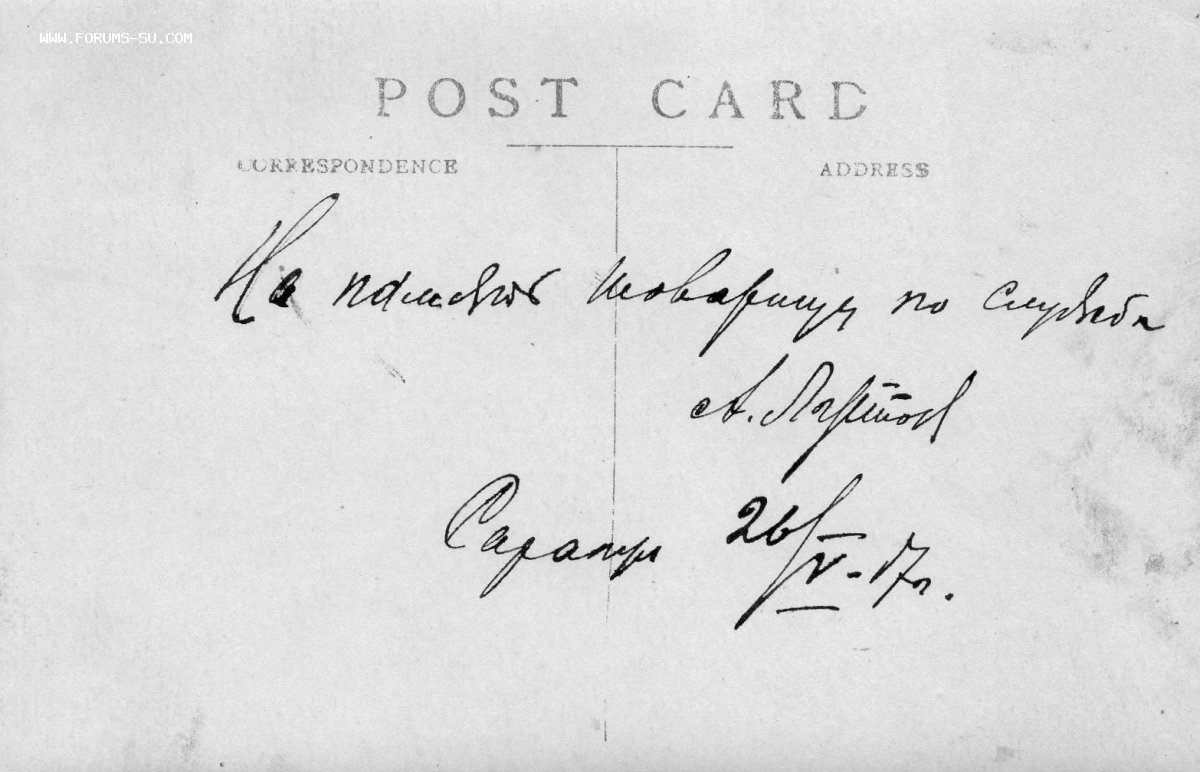 WWW.FORUMS-SU.COM
POST CARD
CORRESPONDENCE ADDRESS
На память товарищу по службе
А.
Сарапул 26/V-17г.